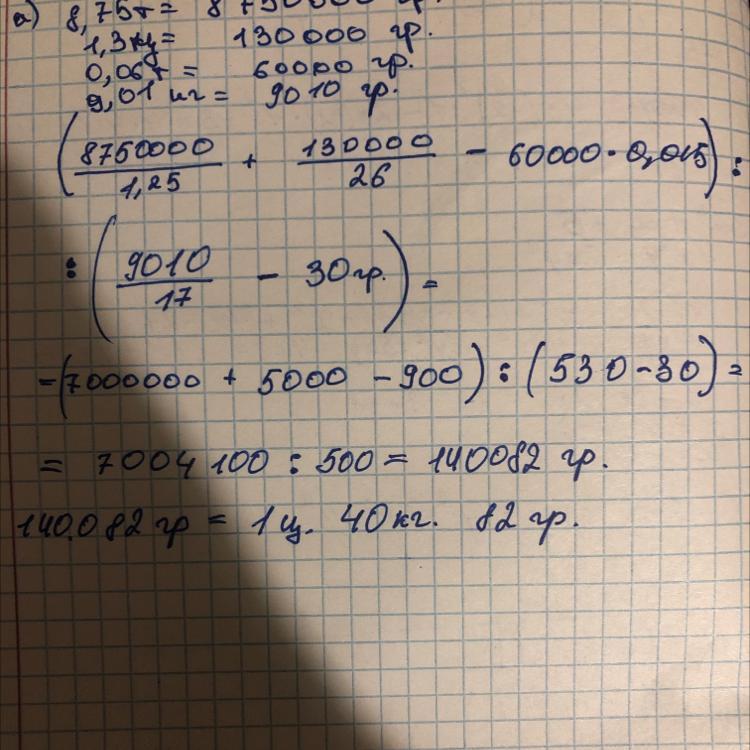 а) 8,75т = 8750000 гр.
1,3ц = 130000 гр.
0,06т = 60000 гр.
9,01 кг = 9010 гр.
(8750000/1,25 + 130000/26 - 60000 · 0,015) :
: (9010/17 - 30гр.) =
=(7000000 + 5000 - 900) : (530-30) =
= 7004100 : 500 = 140082 гр.
140.082 гр = 1ц. 40кг. 82 гр.